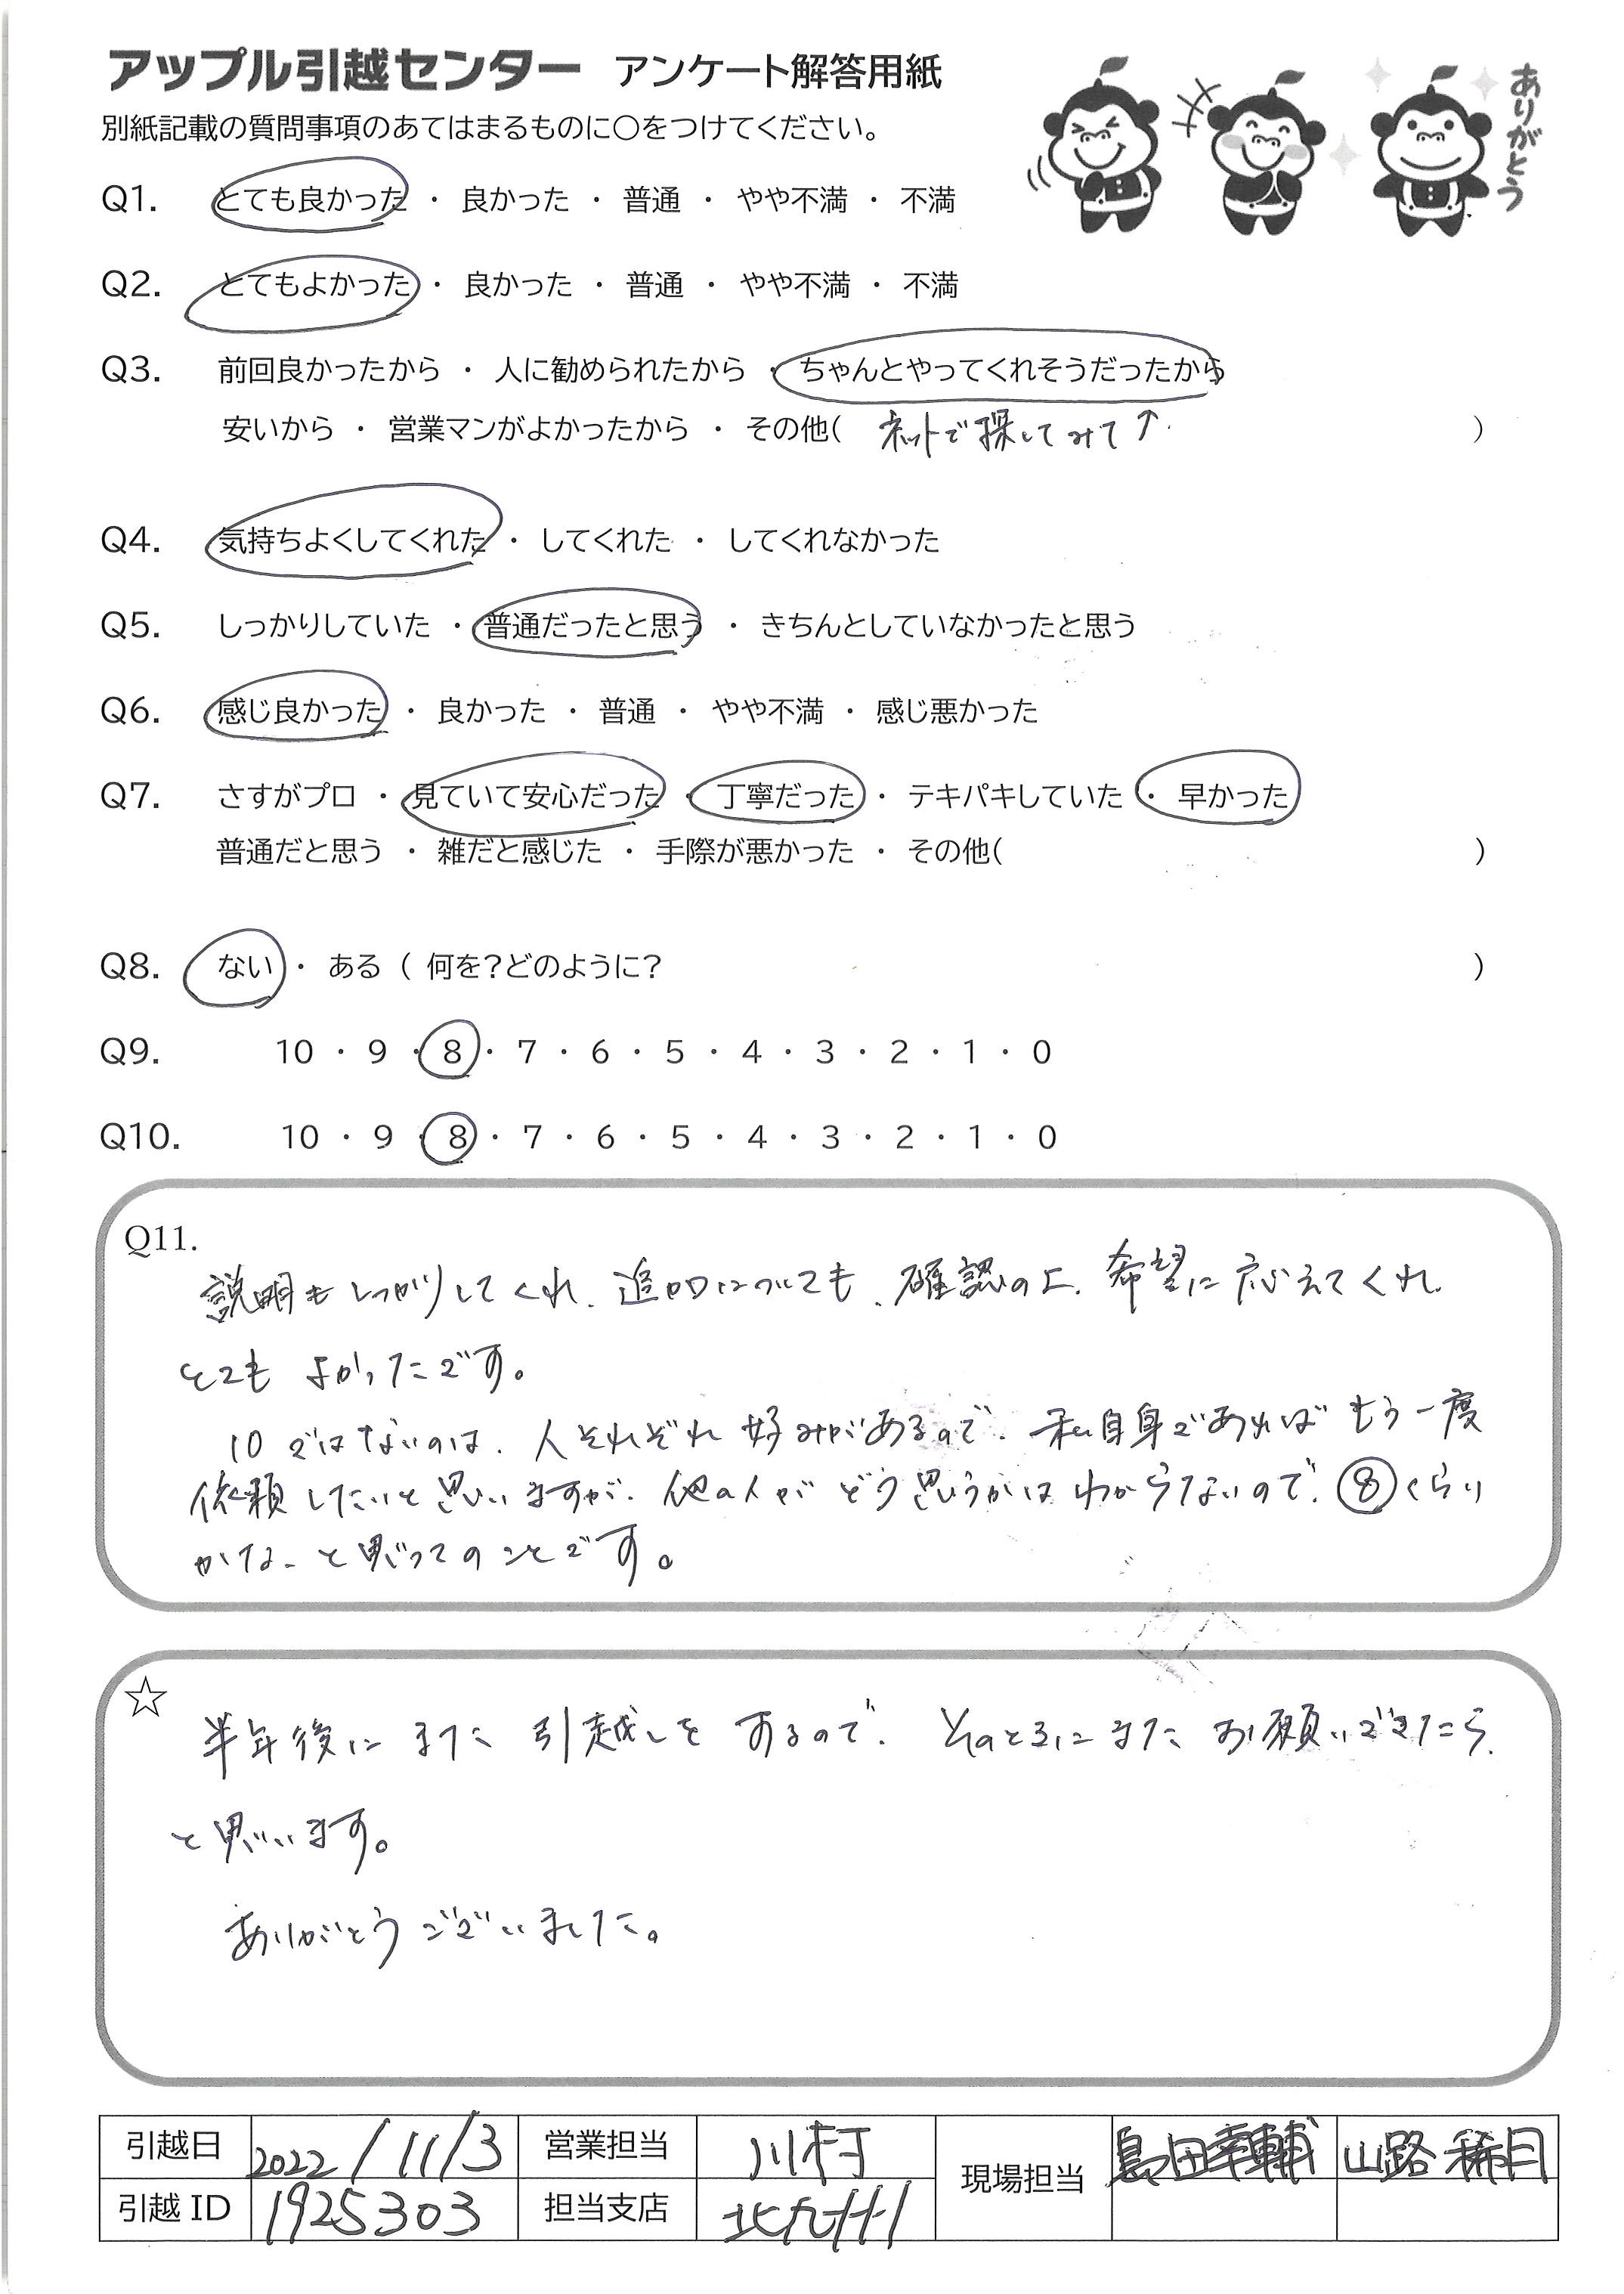 アップル引越センター アンケート解答用紙
ありがとう
別紙記載の質問事項のあてはまるものに○をつけてください。
Q1. とても良かった ・ 良かった ・ 普通 ・ やや不満 ・ 不満
Q2. とてもよかった ・ 良かった ・ 普通 ・ やや不満 ・ 不満
Q3. 前回良かったから ・ 人に勧められたから ・ ちゃんとやってくれそうだったから
安いから ・ 営業マンがよかったから ・ その他( ネットで探してみて↑ )
Q4. 気持ちよくしてくれた ・ してくれた ・ してくれなかった
Q5. しっかりしていた ・ 普通だったと思う ・ きちんとしていなかったと思う
Q6. 感じ良かった ・ 良かった ・ 普通 ・ やや不満 ・ 感じ悪かった
Q7. さすがプロ ・ 見ていて安心だった ・ 丁寧だった ・ テキパキしていた ・ 早かった
普通だと思う ・ 雑だと感じた ・ 手際が悪かった ・ その他( )
Q8. ない ・ ある ( 何を?どのように? )
Q9. 10 ・ 9 ・ 8 ・ 7 ・ 6 ・ 5 ・ 4 ・ 3 ・ 2 ・ 1 ・ 0
Q10. 10 ・ 9 ・ 8 ・ 7 ・ 6 ・ 5 ・ 4 ・ 3 ・ 2 ・ 1 ・ 0
Q11.
説明もしっかりしてくれ、追加についても、確認の上、希望に応えてくれ、
とてもよかったです。
10ではないのは、人それぞれ好みがあるので、私自身であればもう一度
依頼したいと思いますが、他の人がどう思うかはわからないので、⑧くらい
かな、と思ってのことです。
☆
半年後にまた引越しをするので、そのときにまたお願いできたら、
と思います。
ありがとうございました。
引越日 2022/11/3 営業担当 川村 現場担当 島田幸輔 山路稀月
引越ID 1925303 担当支店 北九州